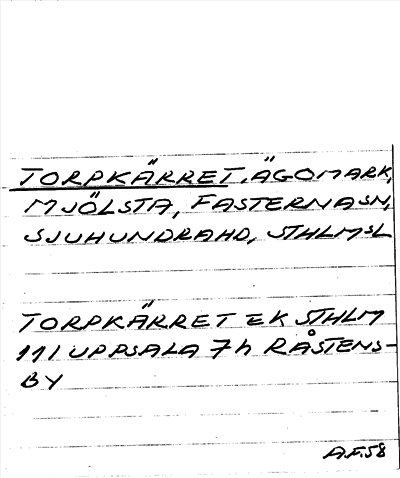 TORPKÄRRET, ÄGOMARK,
MJÖLSTA, FASTERNA SN,
SJUHUNDRA HD, STHLMS L
TORPKÄRRET EK STHLM
11 I UPPSALA 7h RÅSTENS-
BY
A.F. 58